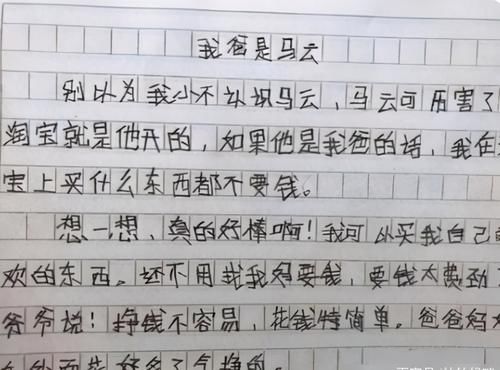 我爸是马云
别以为我小不认识马云,马云可历害了
淘宝就是他开的,如果他是我爸的话,我在
宝上买什么东西都不要钱。
想一想,真的好棒啊!我可以买我自己
欢的东西。还不用找我妈要钱,要钱太费劲
爷爷说!挣钱不容易,花钱特简单。爸爸妈